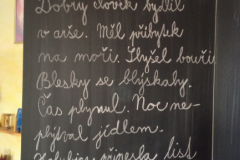 Dobrý člověk bydlil
v arše. Měl příbytek
na moři. Slyšel bouři.
Blesky se blýskaly.
Čas plynul. Noe ne-
plýtval jídlem.
přinesla list